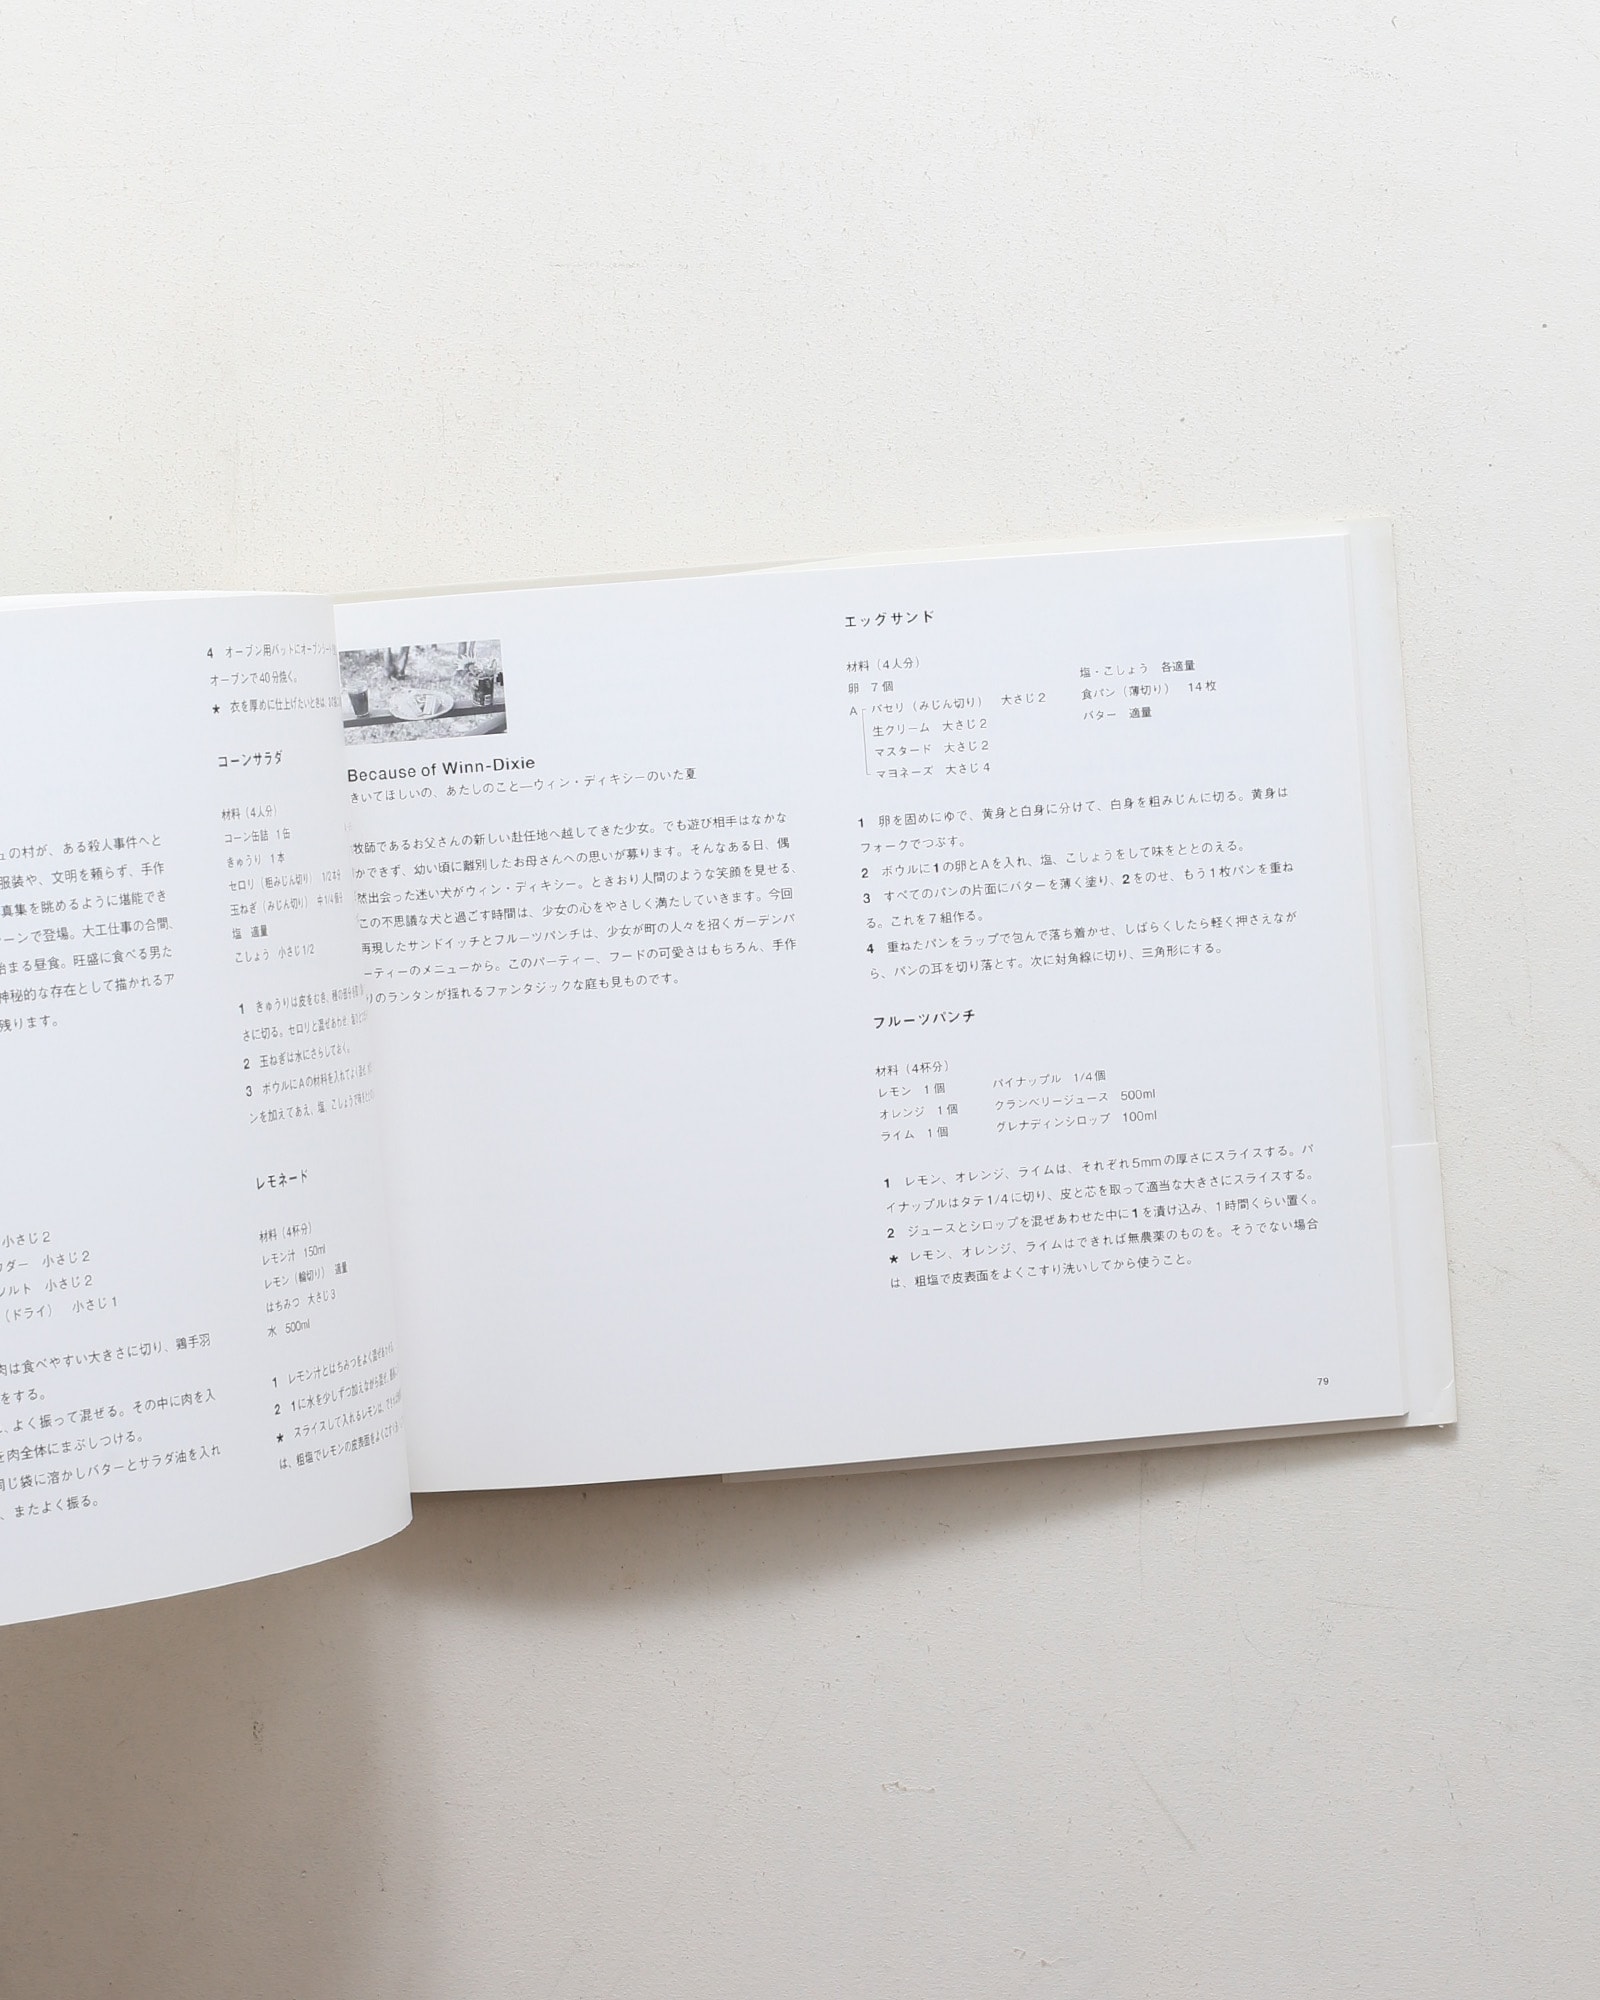 ュの村が、ある殺人事件へと
服装や、文明を頼らず、手作
真集を眺めるように堪能でき
ーンで登場。大工仕事の合間、
始まる昼食。旺盛に食べる男た
神秘的な存在として描かれるア
残ります。
小さじ2
ウダー 小さじ2
ソルト 小さじ2
（ドライ） 小さじ1
肉は食べやすい大きさに切り、鶏手羽
をする。
、よく振って混ぜる。その中に肉を入
を肉全体にまぶしつける。
同じ袋に溶かしバターとサラダ油を入れ
、またよく振る。
4 オーブン用バットにオーブンシート
オーブンで40分焼く。
★ 衣を厚めに仕上げたいときは、
コーンサラダ
材料（4人分）
コーン缶詰 1缶
きゅうり 1本
セロリ（粗みじん切り） 1/2本分
玉ねぎ（みじん切り） 中1/4個分
塩 適量
こしょう 小さじ1/2
1 きゅうりは皮をむき、種の部分を
さに切る。セロリと混ぜあわせ、
2 玉ねぎは水にさらしておく。
3 ボウルにAの材料を入れてよく混ぜ、
ンを加えてあえ、塩、こしょうで味を
レモネード
材料（4杯分）
レモン汁 150ml
レモン（輪切り） 適量
はちみつ 大さじ3
水 500ml
1 レモン汁とはちみつをよく混ぜ
2 1に水を少しずつ加えながら混ぜ、
★ スライスして入れるレモンは、
は、粗塩でレモンの皮表面をよくこすり
Because of Winn-Dixie
きいてほしいの、あたしのこと—ウィン・ディキシーのいた夏
牧師であるお父さんの新しい赴任地へ越してきた少女。でも遊び相手はなかな
かできず、幼い頃に離別したお母さんへの思いが募ります。そんなある日、偶
然出会った迷い犬がウィン・ディキシー。ときおり人間のような笑顔を見せる、
この不思議な犬と過ごす時間は、少女の心をやさしく満たしていきます。今回
再現したサンドイッチとフルーツパンチは、少女が町の人々を招くガーデンパ
ーティーのメニューから。このパーティー、フードの可愛さはもちろん、手作
りのランタンが揺れるファンタジックな庭も見ものです。
エッグサンド
材料（4人分）
卵 7個
A パセリ（みじん切り） 大さじ2
生クリーム 大さじ2
マスタード 大さじ2
マヨネーズ 大さじ4
塩・こしょう 各適量
食パン（薄切り） 14枚
バター 適量
1 卵を固めにゆで、黄身と白身に分けて、白身を粗みじんに切る。黄身は
フォークでつぶす。
2 ボウルに1の卵とAを入れ、塩、こしょうをして味をととのえる。
3 すべてのパンの片面にバターを薄く塗り、2をのせ、もう1枚パンを重ね
る。これを7組作る。
4 重ねたパンをラップで包んで落ち着かせ、しばらくしたら軽く押さえなが
ら、パンの耳を切り落とす。次に対角線に切り、三角形にする。
フルーツパンチ
材料（4杯分）
レモン 1個
オレンジ 1個
ライム 1個
パイナップル 1/4個
クランベリージュース 500ml
グレナディンシロップ 100ml
1 レモン、オレンジ、ライムは、それぞれ5mmの厚さにスライスする。パ
イナップルはタテ1/4に切り、皮と芯を取って適当な大きさにスライスする。
2 ジュースとシロップを混ぜあわせた中に1を漬け込み、1時間くらい置く。
★ レモン、オレンジ、ライムはできれば無農薬のものを。そうでない場合
は、粗塩で皮表面をよくこすり洗いしてから使うこと。
79